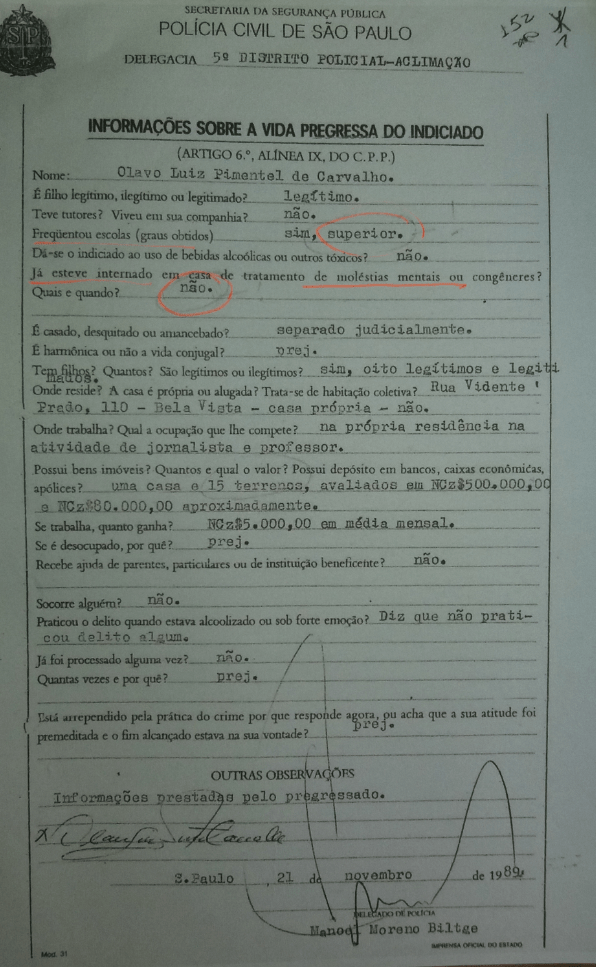 SECRETARIA DA SEGURANÇA PÚBLICA
POLÍCIA CIVIL DE SÃO PAULO
DELEGACIA 5º DISTRITO POLICIAL-ACLIMAÇÃO
152
1
INFORMAÇÕES SOBRE A VIDA PREGRESSA DO INDICIADO
(ARTIGO 6.º, ALÍNEA IX, DO C.P.P.)
Nome: Olavo Luiz Pimentel de Carvalho.
É filho legítimo, ilegítimo ou legitimado? legítimo.
Teve tutores? Viveu em sua companhia? não.
Freqüentou escolas (graus obtidos) sim, superior.
Dá-se o indiciado ao uso de bebidas alcoólicas ou outros tóxicos? não.
Já esteve internado em casa de tratamento de moléstias mentais ou congêneres?
Quais e quando? não.
É casado, desquitado ou amancebado? separado judicialmente.
É harmônica ou não a vida conjugal? prej.
Tem filhos? Quantos? São legítimos ou ilegítimos? sim, oito legítimos e legiti
mados.
Onde reside? A casa é própria ou alugada? Trata-se de habitação coletiva? Rua Vidente
Prado, 110 - Bela Vista - casa própria - não.
Onde trabalha? Qual a ocupação que lhe compete? na própria residência na
atividade de jornalista e professor.
Possui bens imóveis? Quantos e qual o valor? Possui depósito em bancos, caixas econômicas,
apólices? uma casa e 15 terrenos, avaliados em NCz$500.000,00
e NCz$80.000,00 aproximadamente.
Se trabalha, quanto ganha? NCz$5.000,00 em média mensal.
Se é desocupado, por quê? prej.
Recebe ajuda de parentes, particulares ou de instituição beneficente? não.
Socorre alguém? não.
Praticou o delito quando estava alcoolizado ou sob forte emoção? Diz que não prati-
cou delito algum.
Já foi processado alguma vez? não.
Quantas vezes e por quê? prej.
Está arrependido pela prática do crime por que responde agora, ou acha que a sua atitude foi
premeditada e o fim alcançado estava na sua vontade? prej.
OUTRAS OBSERVAÇÕES
Informações prestadas pelo pregressado.
S.Paulo, 21 de novembro de 1989
DELEGADO DE POLÍCIA
Manoel Moreno Biltge
Mod. 31
IMPRENSA OFICIAL DO ESTADO